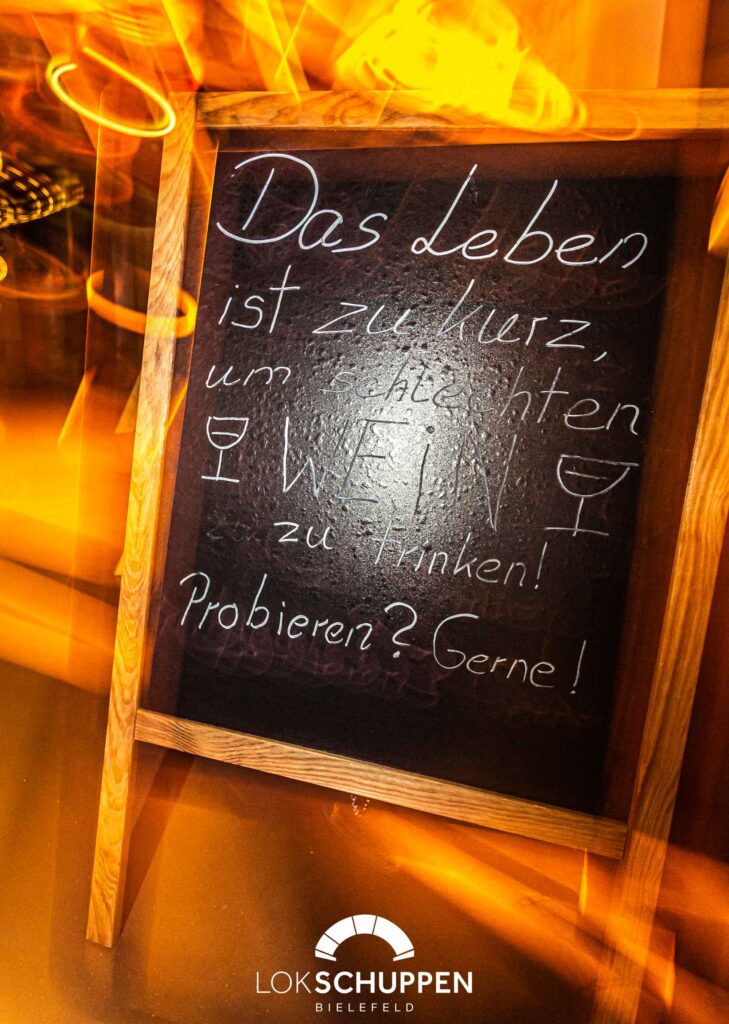 Das Leben
ist zu kurz,
um schlechten
WEiN
zu trinken!
Probieren? Gerne!
LOKSCHUPPEN
BIELEFELD